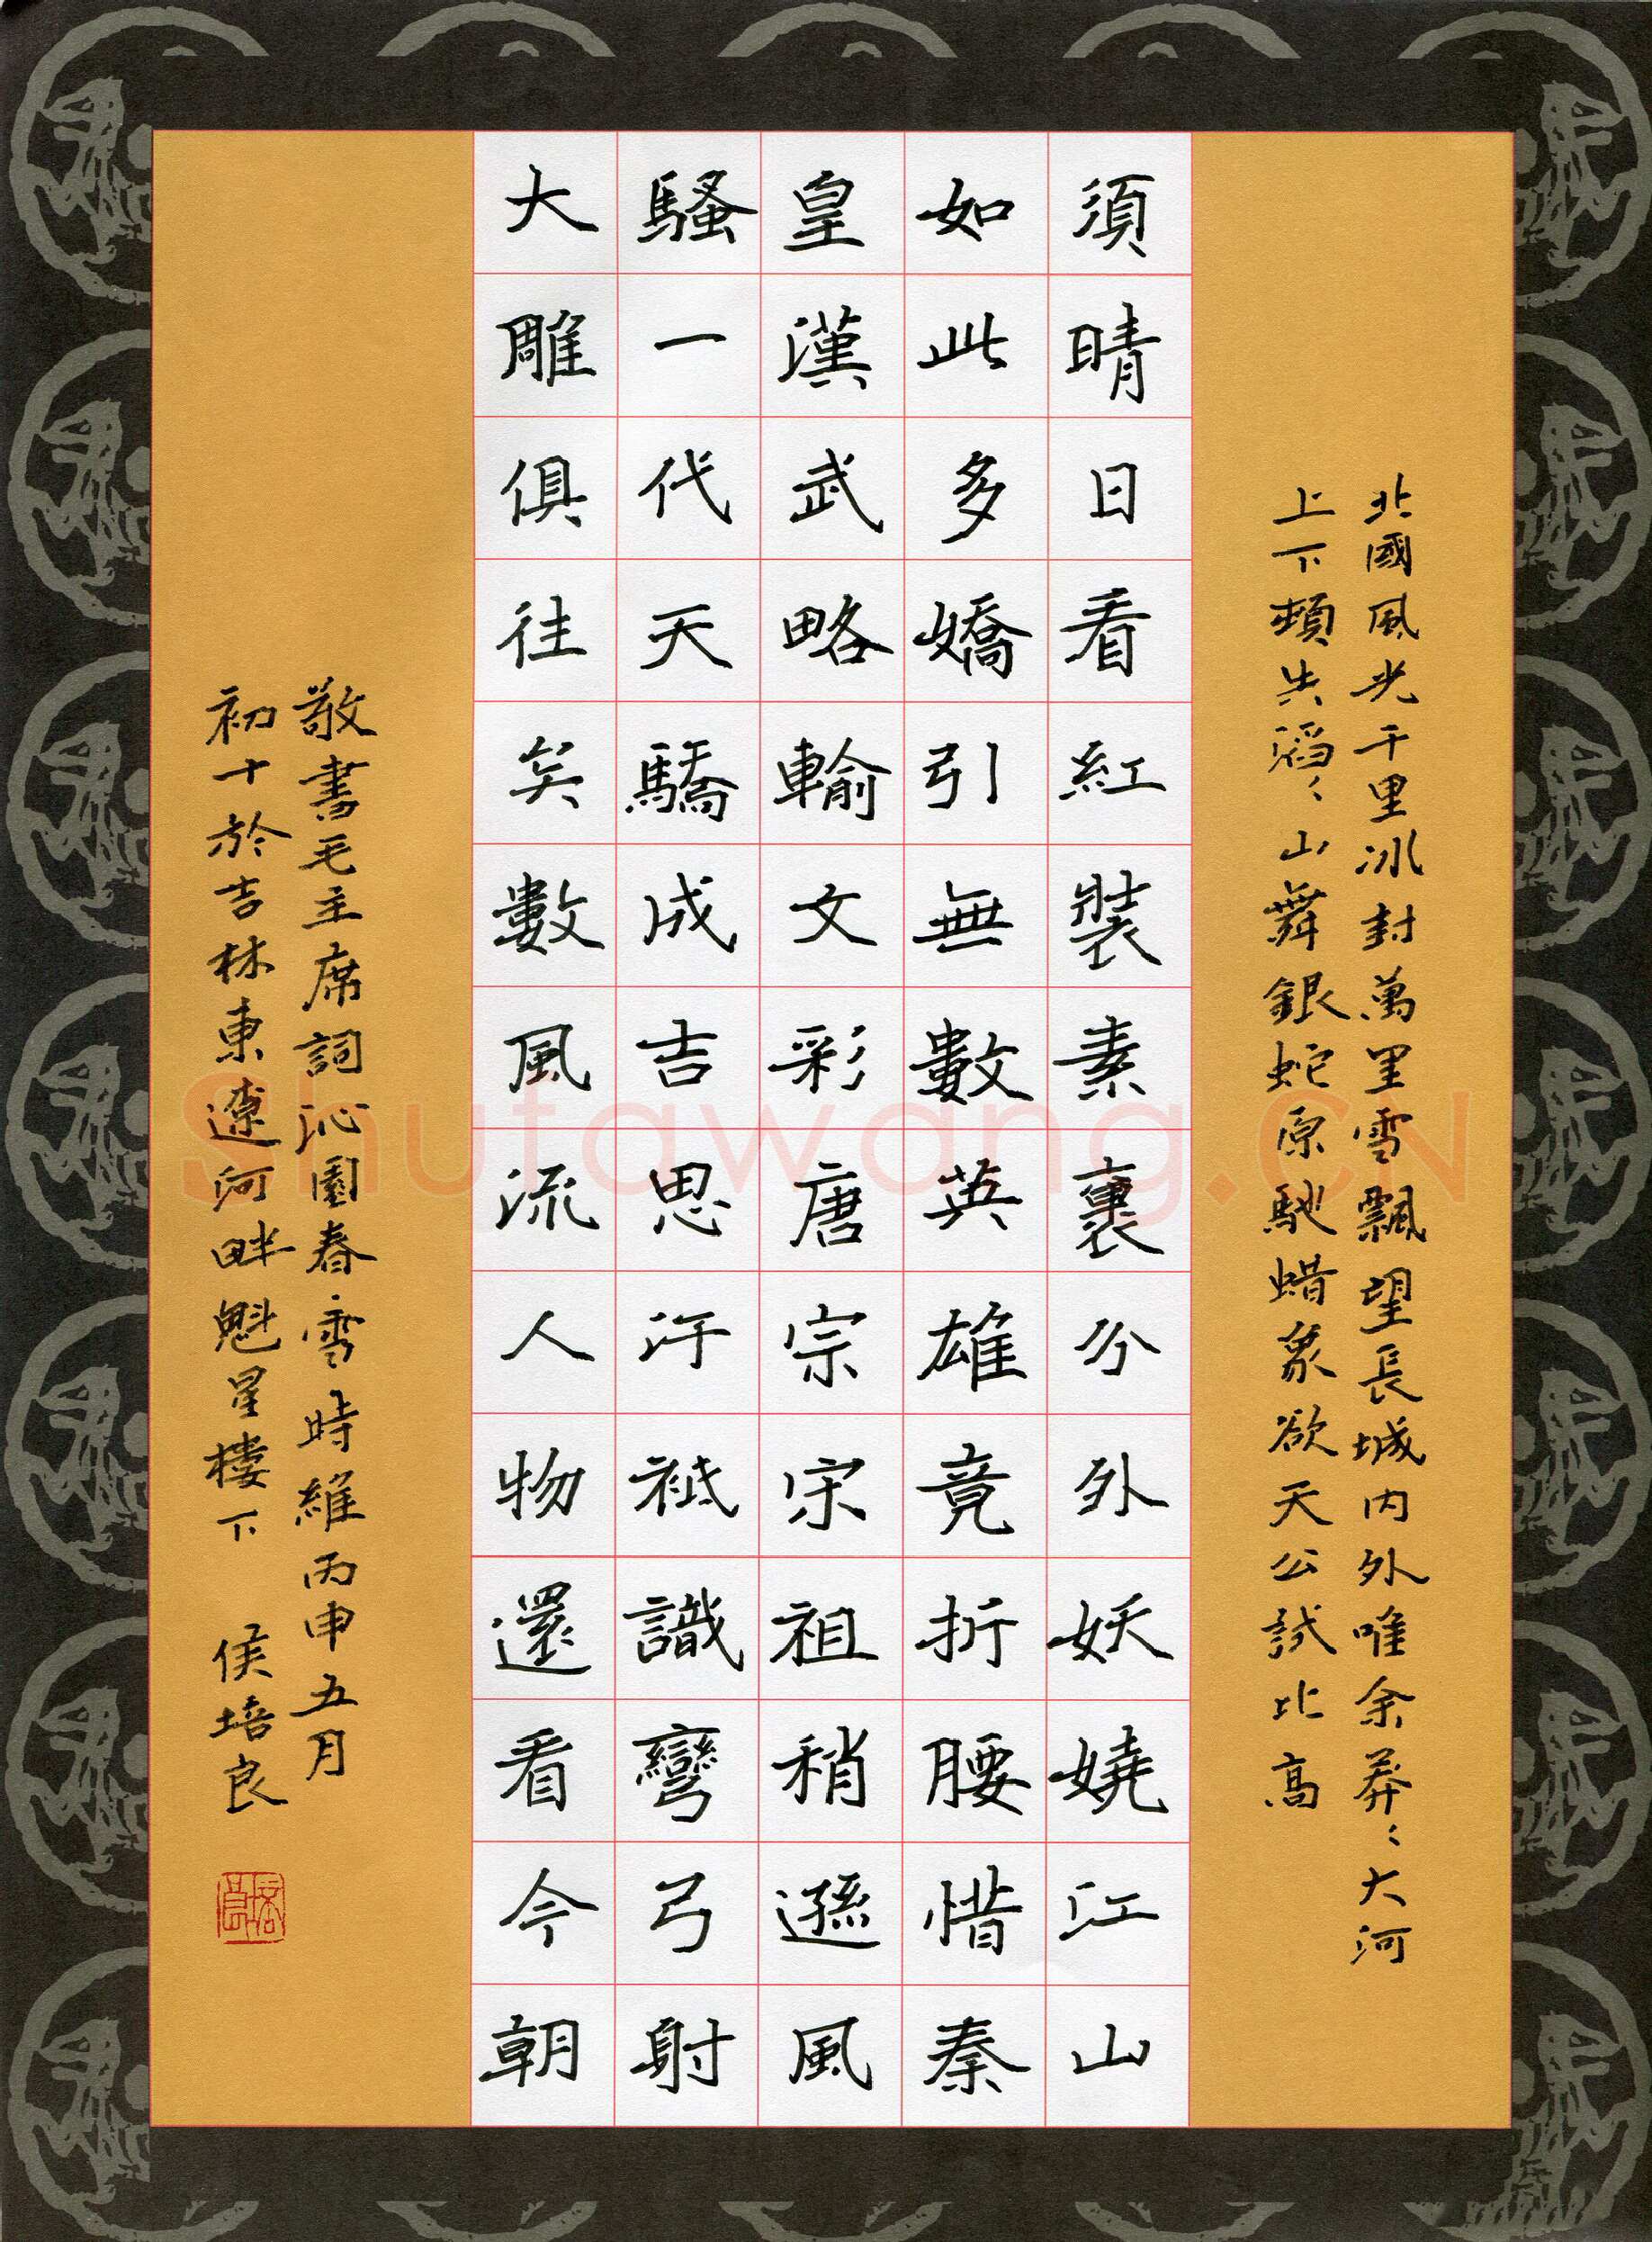 北國風光千里冰封萬里雪飄望長城内外唯余莽〻大河
上下頓失滔〻山舞銀蛇原馳蜡象欲天公試比高
須晴日看紅裝素裹分外妖嬈江山
如此多嬌引無數英雄竟折腰惜秦
皇漢武略輸文彩唐宗宋祖稍遜風
騷一代天驕成吉思汗祗識彎弓射
大雕俱往矣數風流人物還看今朝
敬書毛主席詞沁園春·雪時維丙申五月
初十於吉林東遼河畔魁星樓下 侯培良
Shufawang.CN